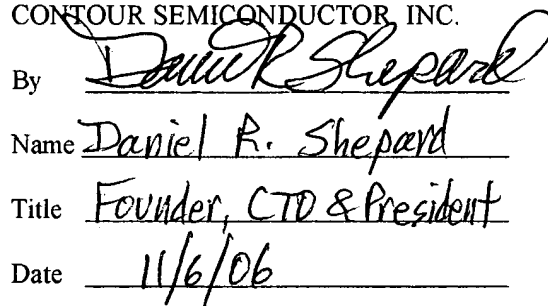 CONTOUR SEMICONDUCTOR, INC.
By Daniel R Shepard
Name Daniel R. Shepard
Title Founder, CTO & President
Date 11/6/06